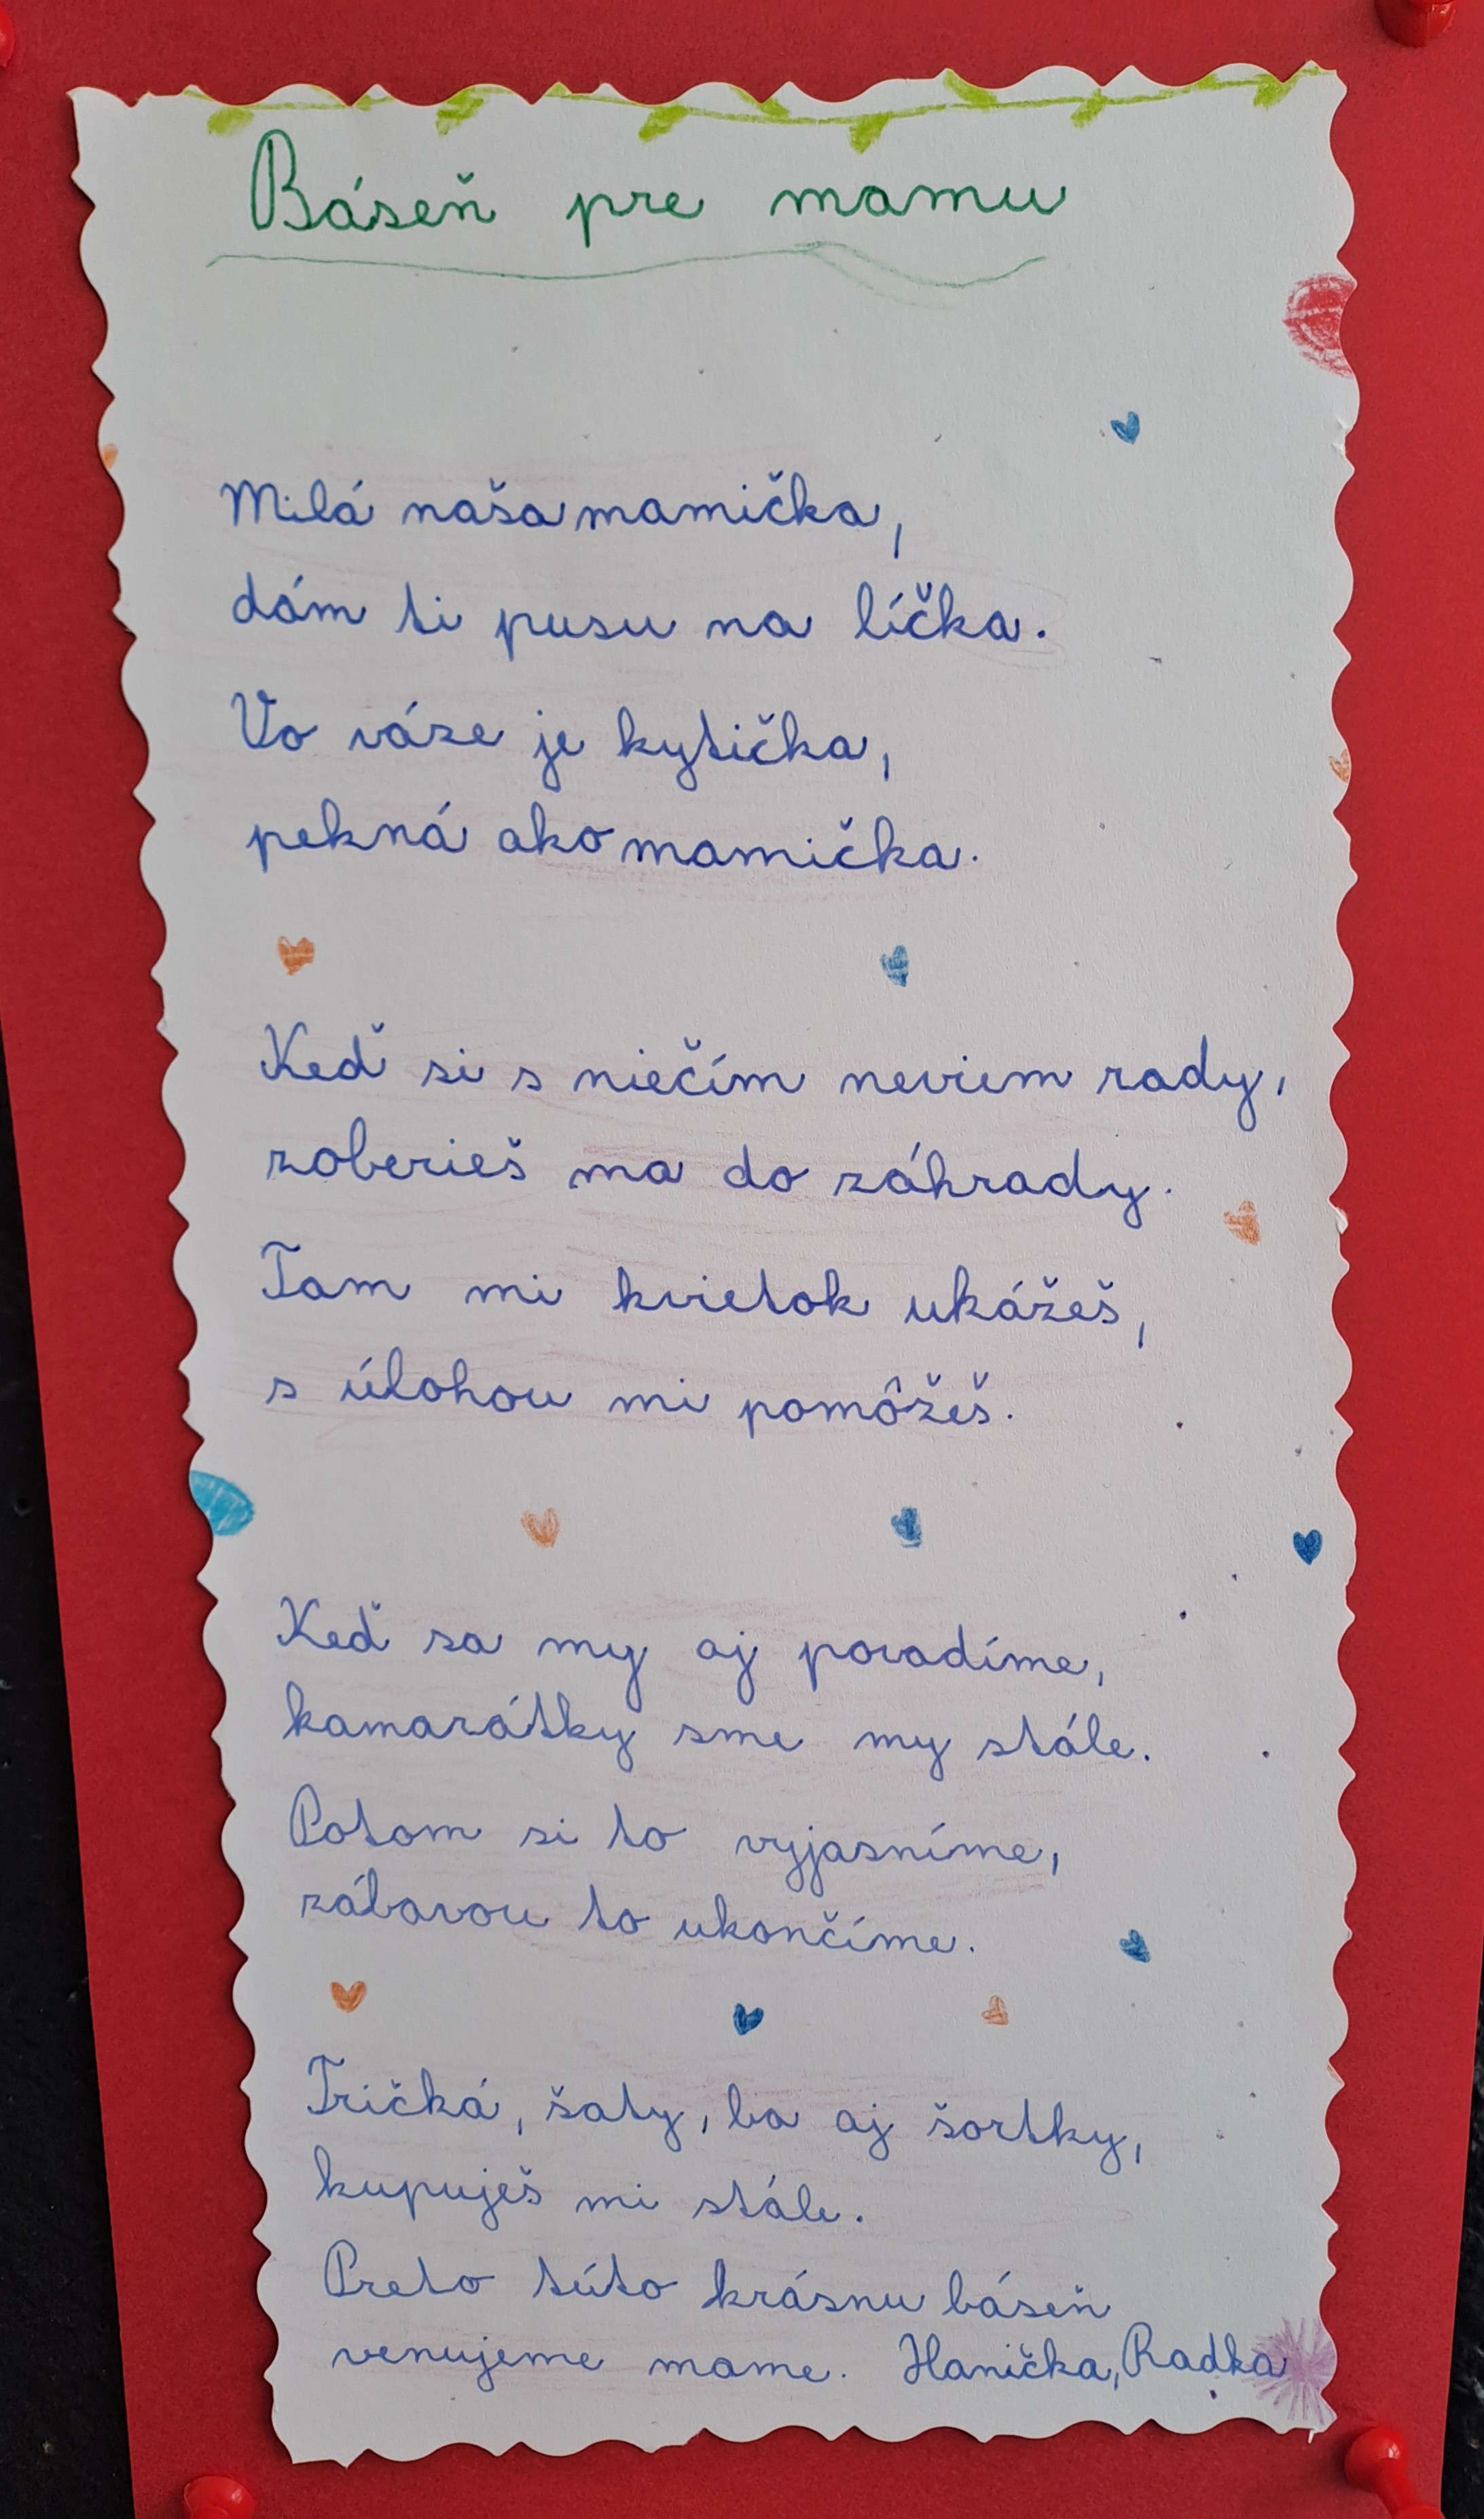 Báseň pre mamu
Milá naša mamička,
dám ti pusu na líčka.
Vo váze je kytička,
pekná ako mamička.
Keď si s niečím neviem rady,
zoberieš ma do záhrady.
Tam mi kvietok ukážeš,
s úlohou mi pomôžeš.
Keď sa my aj povadíme,
kamarátky sme my stále.
Potom si to vyjasníme,
zábavou to ukončíme.
Tričká, šaty, ba aj šortky,
kupuješ mi stále.
Preto túto krásnu báseň
venujeme mame. Hanička, Radka